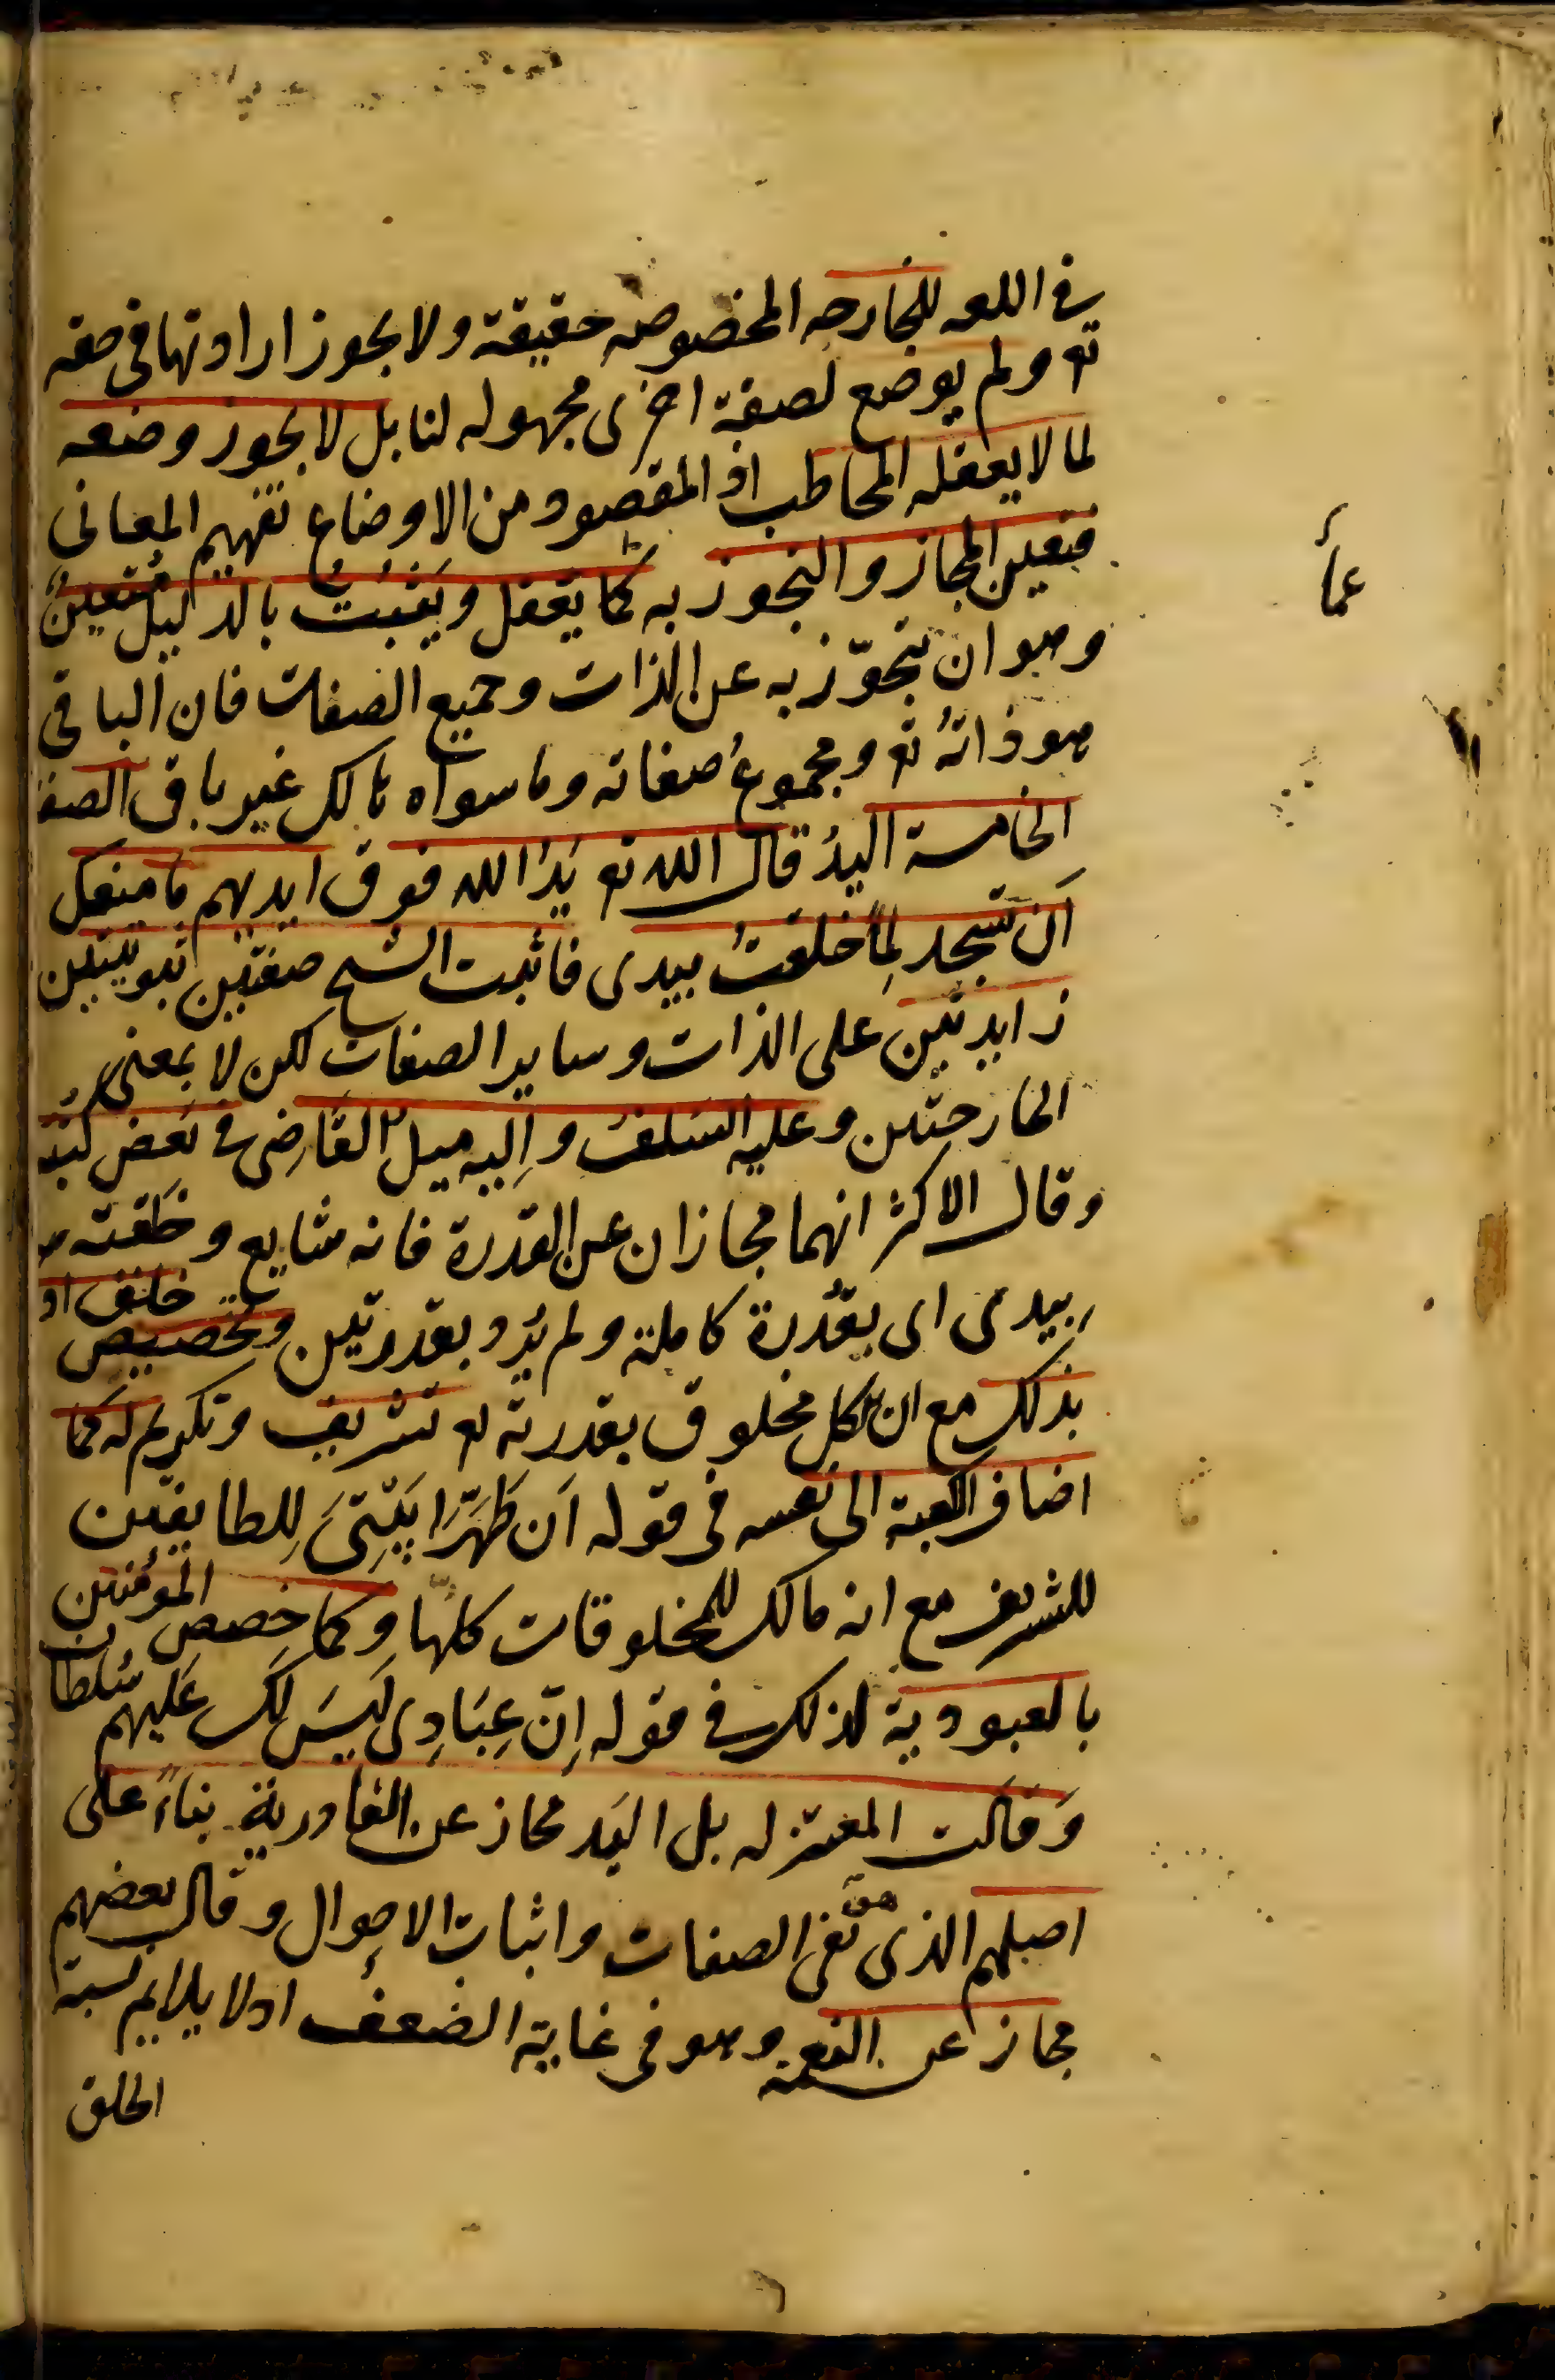 في اللعه للجارحه المخصوصه حقيقة ولا يجوز ارادتها في حقه
تع ولم يوضع لصفة اخرى مجهوله لنا بل لا يجوز وضعه
لما لا يعقله المخاطب اذ المقصود من الاوضاع تفهيم المعاني
فتعين المجاز والتجوز به عما يعقل ويثبت بالدليل متعين
وهو ان تجوّز به عن الذات وجميع الصفات فان الباقي
هو ذاتهُ تع ومجموعُ صفاته وما سواه هالك غير باق الصفة
الخامسة اليدُ قال الله تع يَدُ الله فوق ايديهم ما منعك
اَن تسجد لِما خلقتُ بيدى فاثبت الشيخ صفتين ثبوتيتين
زايدتين على الذات وساير الصفات لكن لا بمعنى
الجارحتين وعليه السلف واِليه ميل القاضى في بعض كتبه
وقال الاكثر انهما مجازان عن القدرة فانه شايع وخلقته
بيدى اى بقُدرة كاملة ولم يُرد بقدرتين وتخصيص خلق ادم
بذلك مع ان الكل مخلوق بقدرته تع تشريف وتكريم له كما
اضاف الكعبة الى نفسه في قوله اَن طَهِّرَا بَيْتِىَ لِلطايفين
للتشريف مع انه مالك للمخلوقات كلها وكما خصص المؤمنين
بالعبودية لذلك في قوله اِنّ عِبَادِى لَيسَ لكَ عَلَيهم سُلطان
وَقالت المعتزله بل اليَد مجاز عن القادرية بناءً على
اصلهم الذى هو نفى الصفات واثبات الاحوال وقال بعضهم
مجاز عن النعمة وهو في غاية الضعف اذ لا يلايم نسبة
الخلق
عمأ